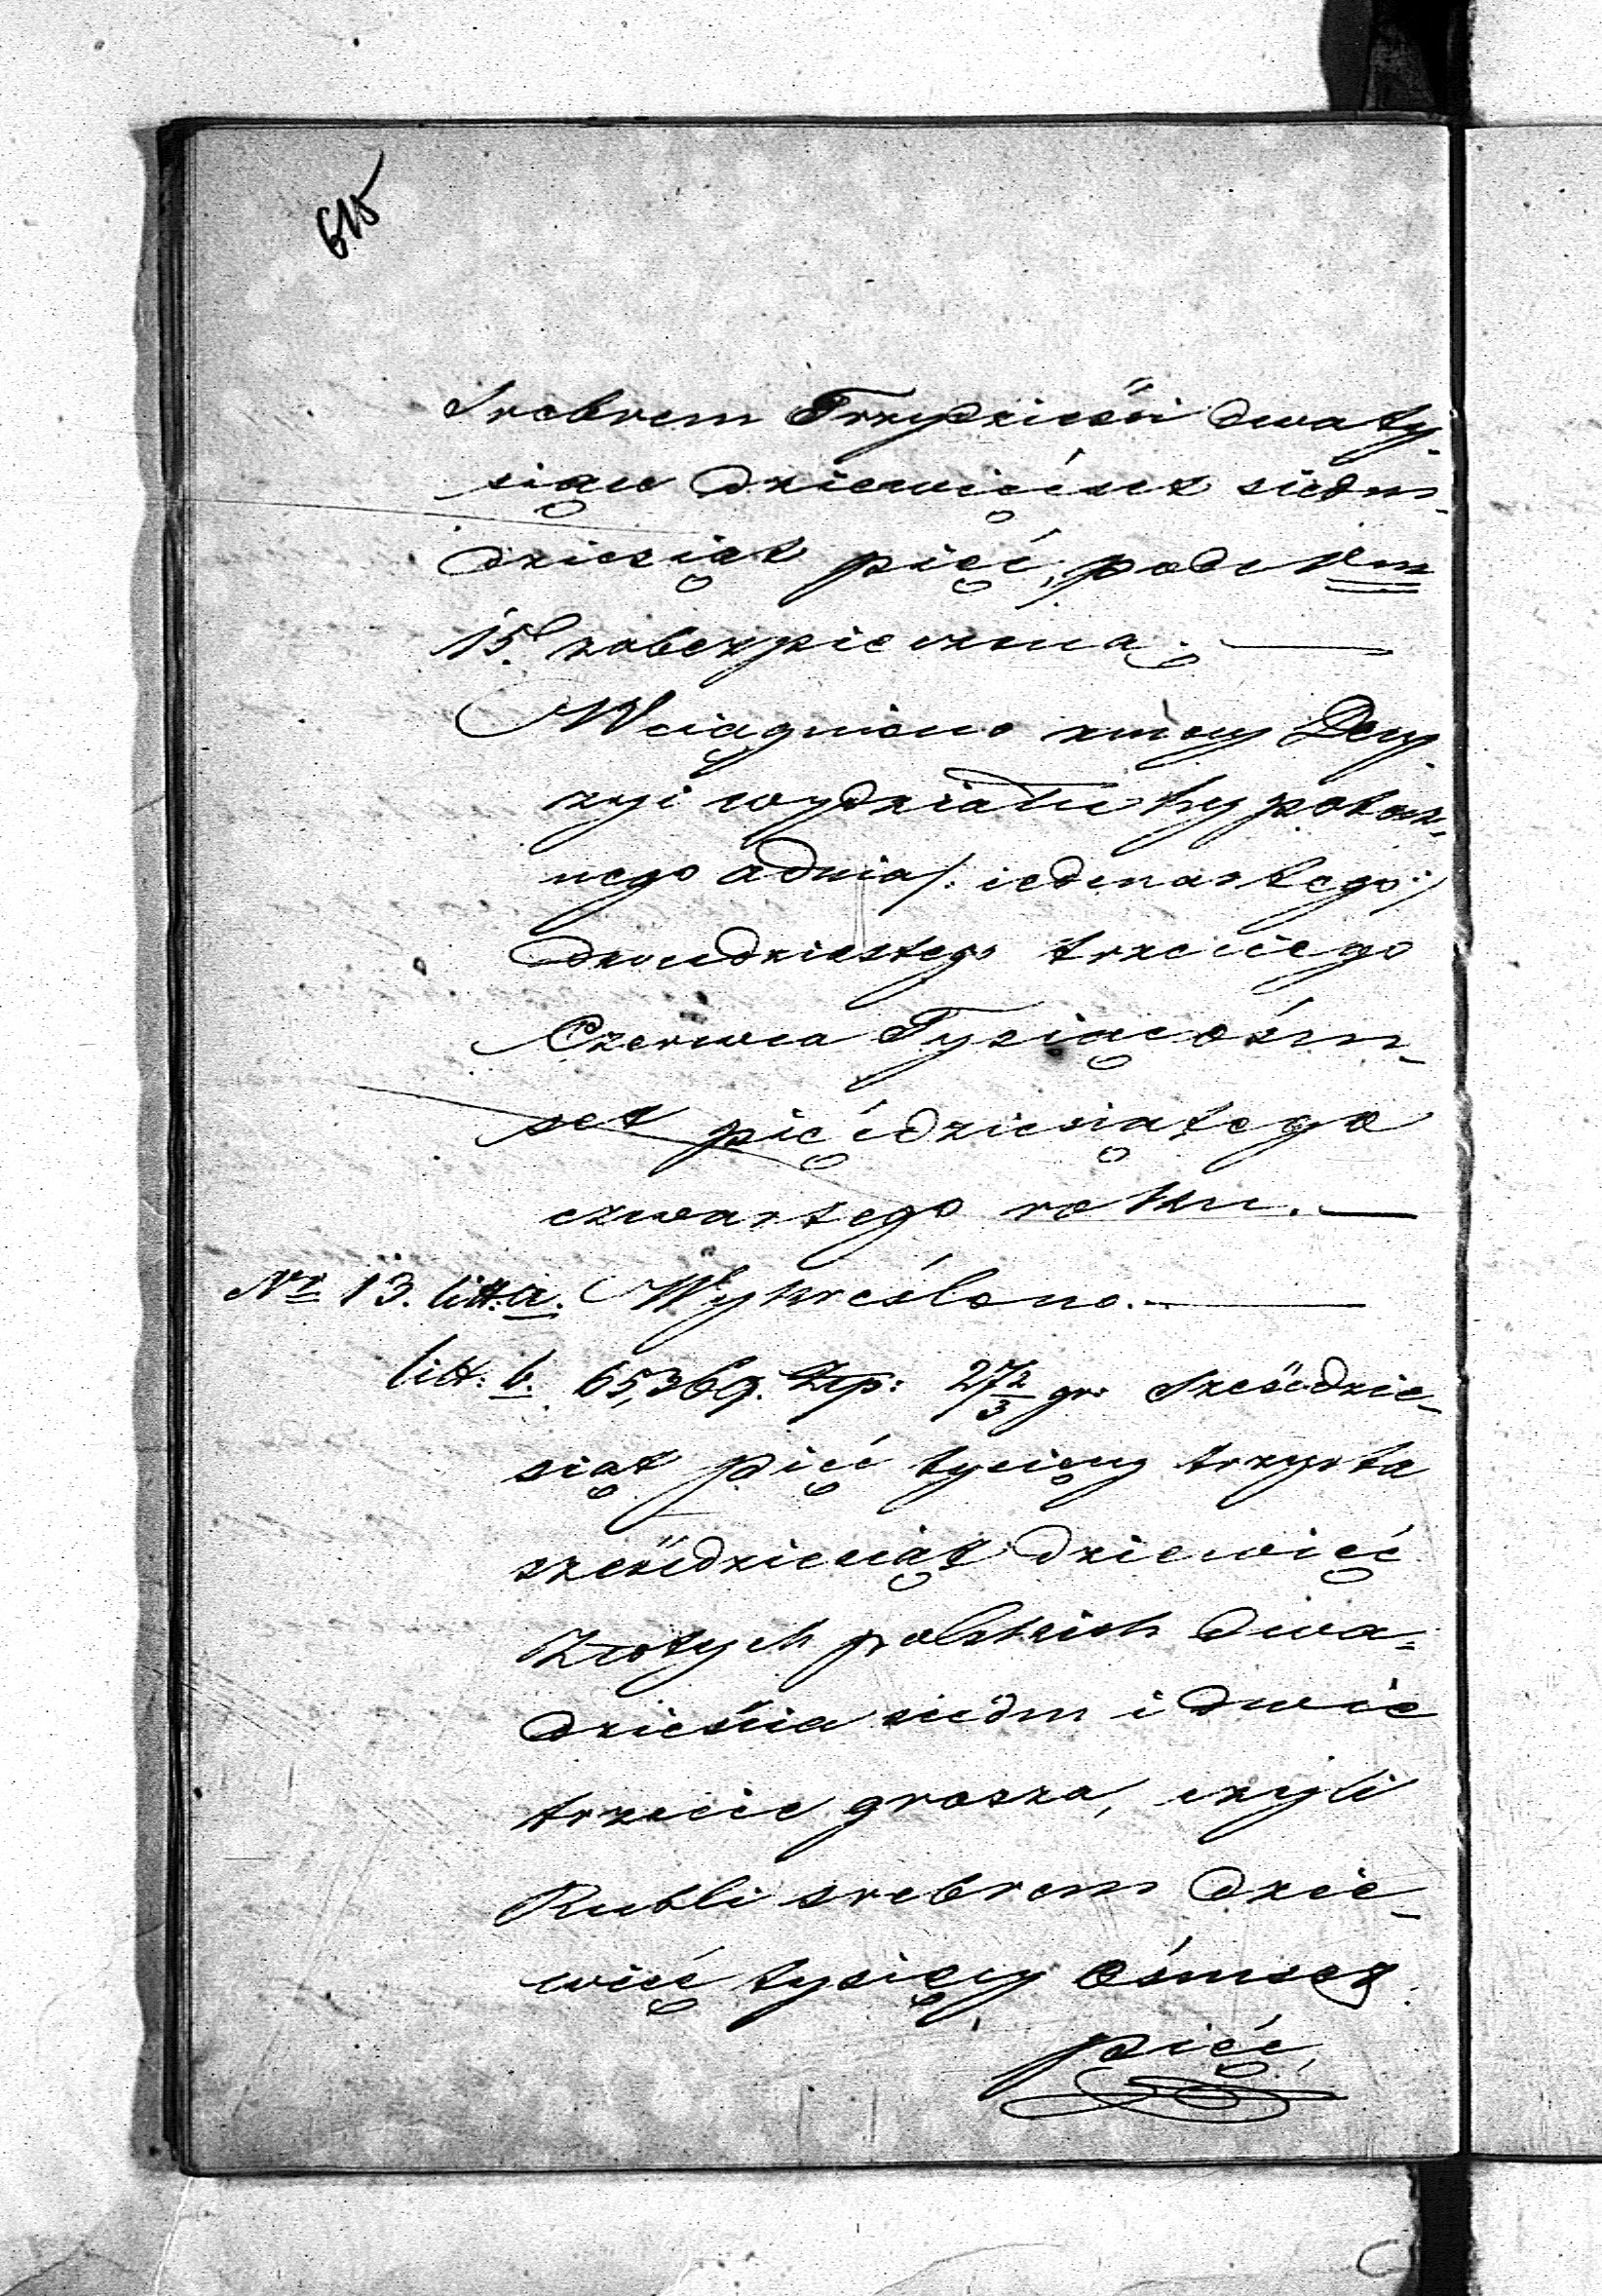 615
Srebrem Trzydzieści dwa ty-
siące dziewięćset siedm-
dziesiąt pięć, pod Nrm
15. zabezpieczoną.
Wciągniono z mocy Decy-
zyi wydziału hypotecz-
nego a dnia /: iedenastego :/
dwudziestego trzeciego
Czerwca Tysiąc ośm-
set pięćdziesiątego
czwartego roku.
Nr 13. litt: a. Wykreślono.
litt: b. 65,369. Złp: 27 2/3 gr: Sześćdzie-
siąt pięć tysięcy trzysta
sześćdziesiąt dziewięć
Złotych polskich dwa-
dzieścia siedm i dwie
trzecie grosza, czyli
Rubli srebrem dzie-
więć tysięcy ośmset
pięć,